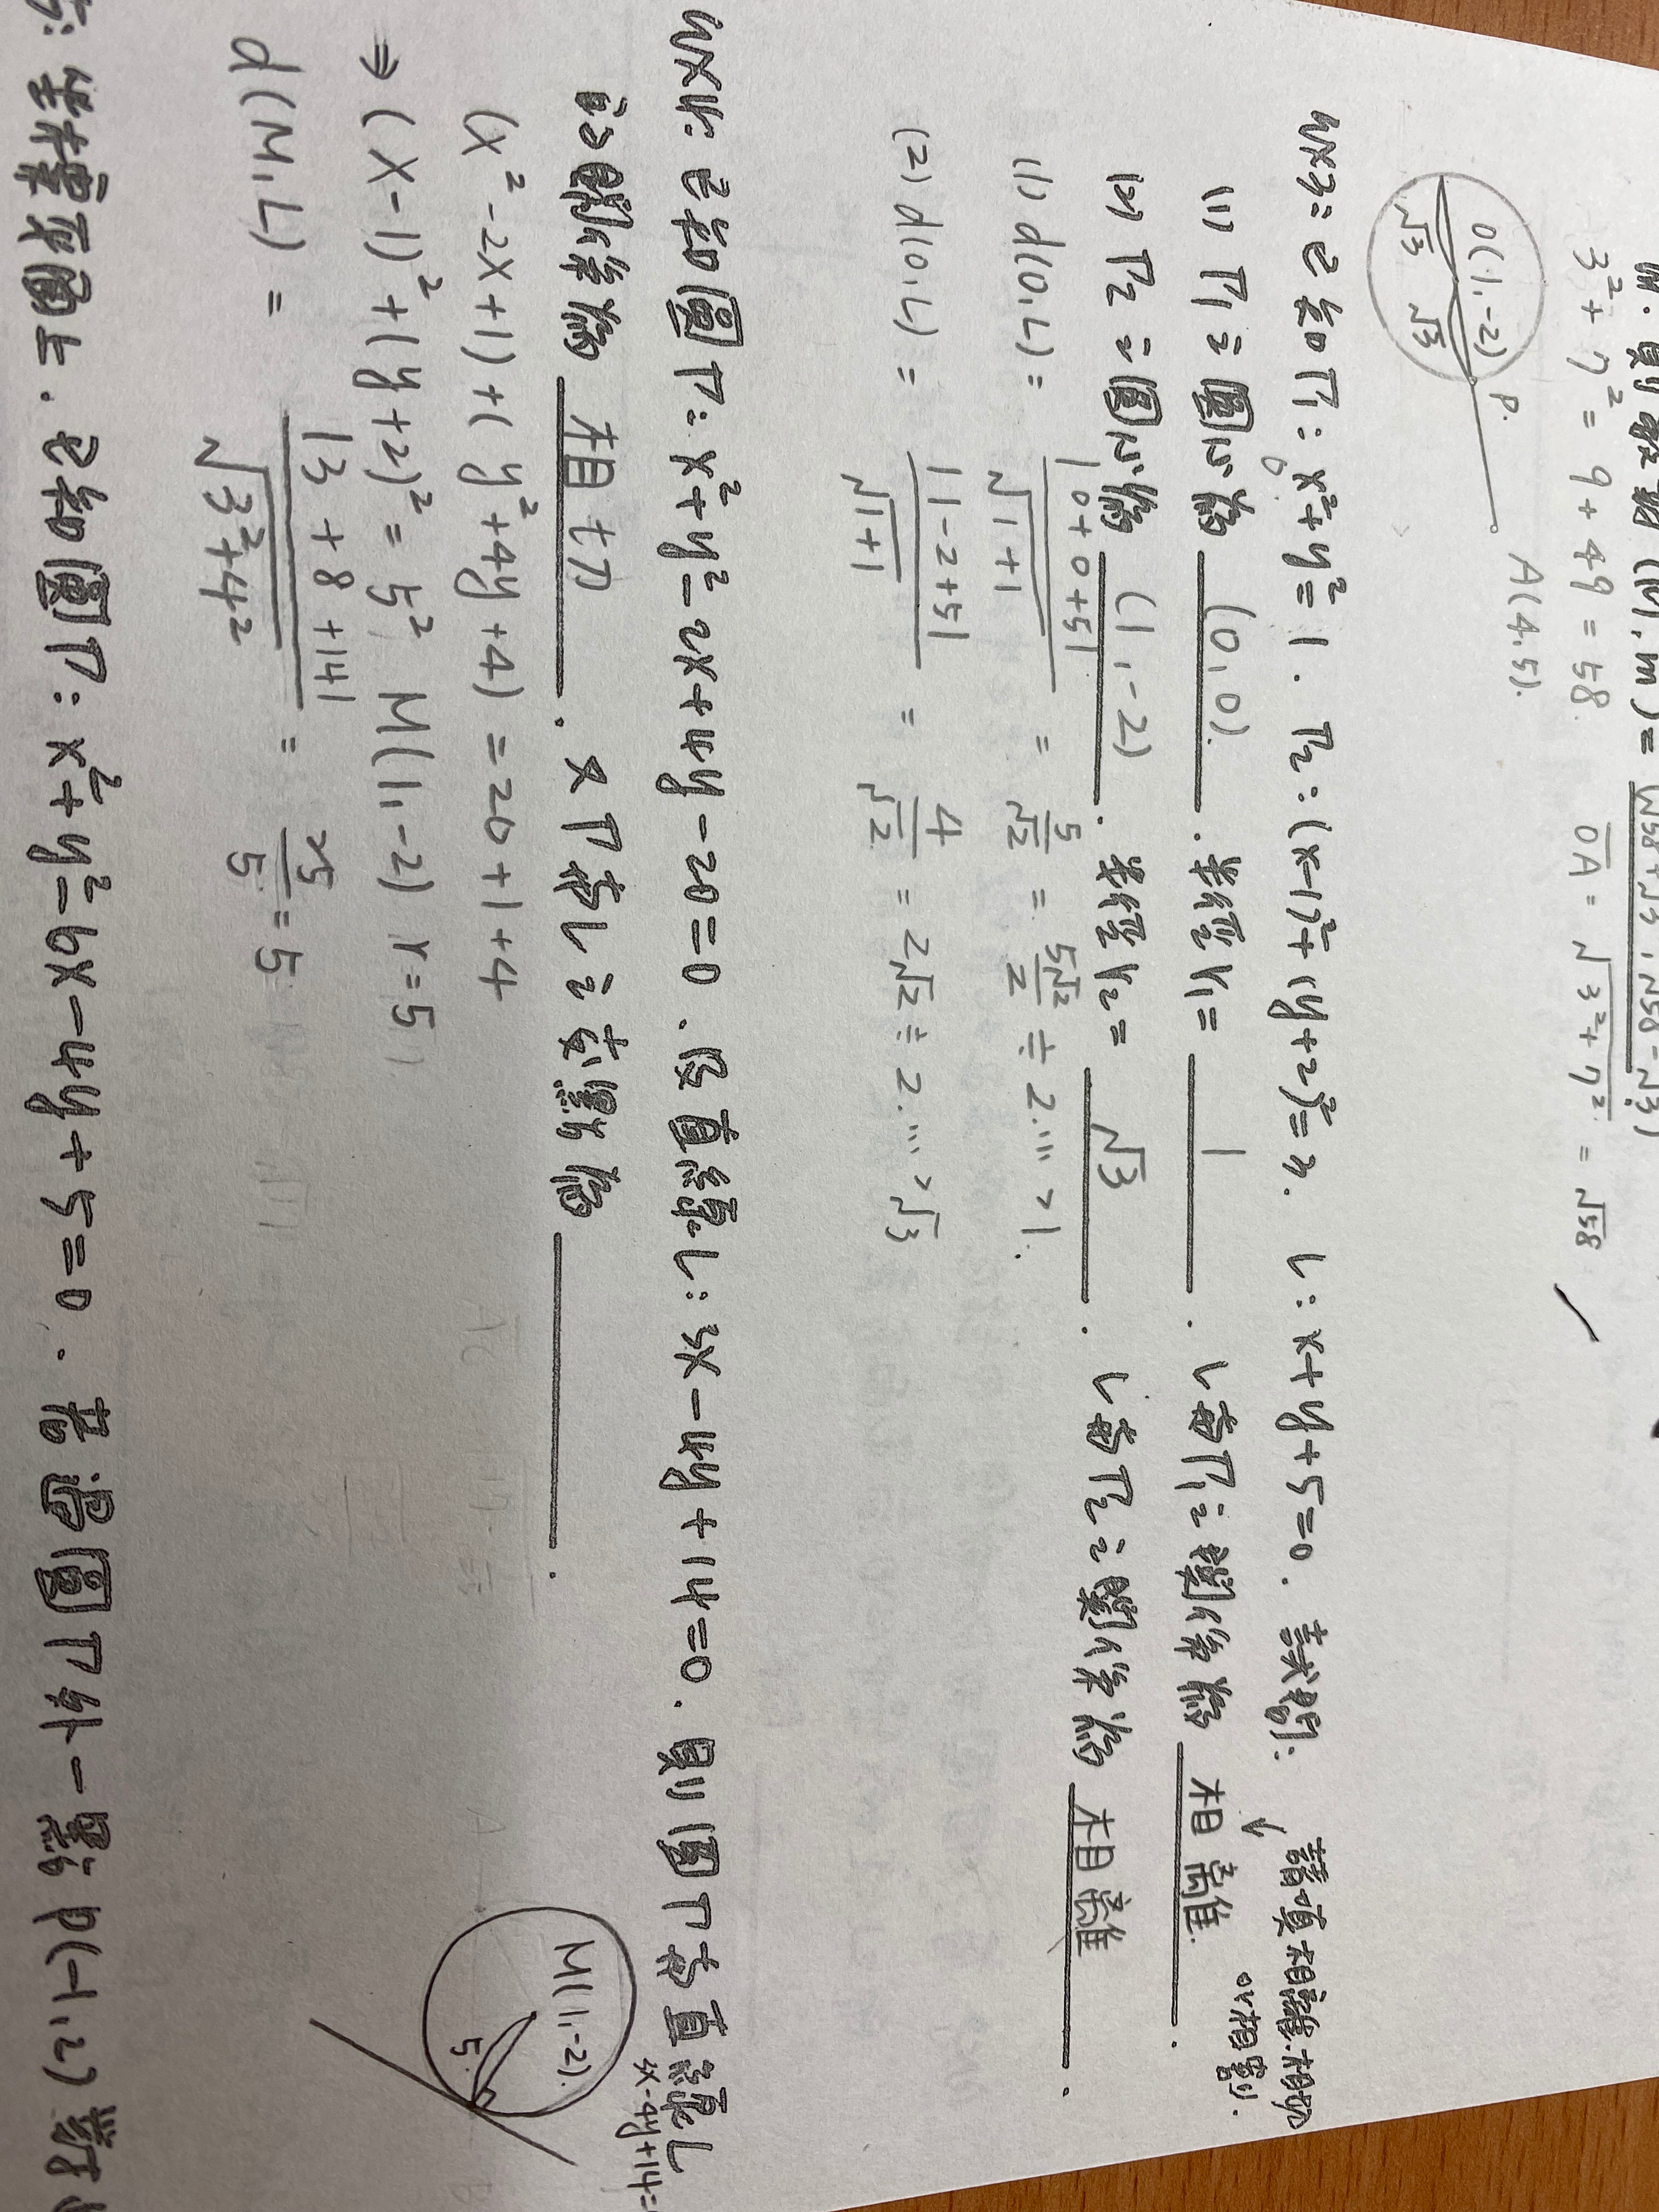 M, 則數對 (M, m) = (√58+√3, √58-√3)
3² + 7² = 9 + 49 = 58. OA = √3²+7² = √58
A(4,5).
O(1,-2) P.
√3 √3
ex3: 已知Γ₁: x²+y²=1. Γ₂: (x-1)²+(y+2)²=3. L: x+y+5=0. 試求:
請填相離.相切
or相割.
(1) Γ₁之圓心為 (0,0). . 半徑r₁= 1 . L與Γ₁之關係為 相離 .
(2) Γ₂之圓心為 (1,-2) . 半徑r₂= √3 . L與Γ₂之關係為 相離 .
(1) d(O,L) = |0+0+5| / √1+1 = 5/√2 = 5√2/2 ≑ 2.... > 1.
(2) d(O,L) = |1-2+5| / √1+1 = 4/√2 = 2√2 ≑ 2.... > √3
ex4: 已知圓Γ: x²+y²-2x+4y-20=0. 設直線L: 3x-4y+14=0. 則圓Γ與直線L
3x-4y+14=
的關係為 相切 . 又Γ與L之交點為 .
(x²-2x+1)+(y²+4y+4) = 20+1+4
⇒ (x-1)²+(y+2)² = 5², M(1,-2) r=5
d(M,L) = |3+8+14| / √3²+4² = 25/5 = 5
M(1,-2).
5
已知圓Γ: x²+y²-6x-4y+5=0. 若過圓Γ外一點P(-1,2)